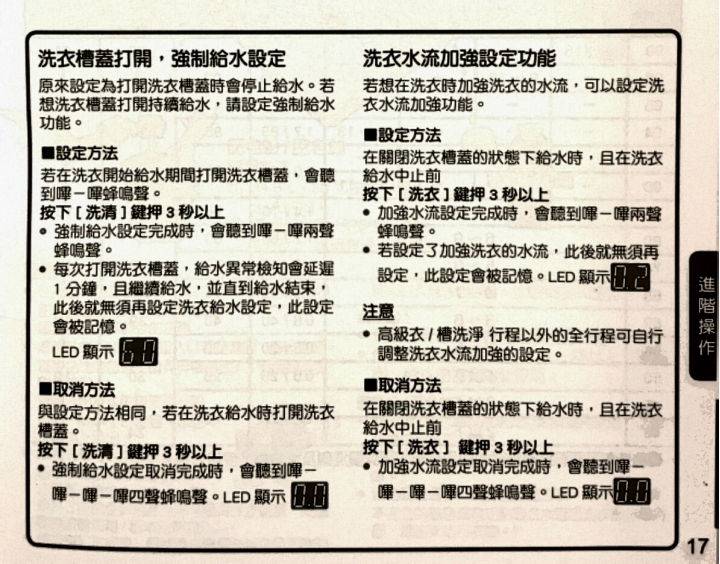 洗衣槽蓋打開，強制給水設定
原來設定為打開洗衣槽蓋時會停止給水。若
想洗衣槽蓋打開持續給水，請設定強制給水
功能。
■設定方法
若在洗衣開始給水期間打開洗衣槽蓋，會聽
到嗶－嗶蜂鳴聲。
按下 [ 洗清 ] 鍵押 3 秒以上
• 強制給水設定完成時，會聽到嗶－嗶兩聲
蜂鳴聲。
• 每次打開洗衣槽蓋，給水異常檢知會延遲
1 分鐘，且繼續給水，並直到給水結束，
此後就無須再設定洗衣給水設定，此設定
會被記憶。
LED 顯示
■取消方法
與設定方法相同，若在洗衣給水時打開洗衣
槽蓋。
按下 [ 洗清 ] 鍵押 3 秒以上
• 強制給水設定取消完成時，會聽到嗶－
嗶－嗶－嗶四聲蜂鳴聲。LED 顯示 0.0
洗衣水流加強設定功能
若想在洗衣時加強洗衣的水流，可以設定洗
衣水流加強功能。
■設定方法
在關閉洗衣槽蓋的狀態下給水時，且在洗衣
給水中止前
按下 [ 洗衣 ] 鍵押 3 秒以上
• 加強水流設定完成時，會聽到嗶－嗶兩聲
蜂鳴聲。
• 若設定了加強洗衣的水流，此後就無須再
設定，此設定會被記憶。LED 顯示 0.2
注意
• 高級衣 / 槽洗淨 行程以外的全行程可自行
調整洗衣水流加強的設定。
■取消方法
在關閉洗衣槽蓋的狀態下給水時，且在洗衣
給水中止前
按下 [ 洗衣 ] 鍵押 3 秒以上
• 加強水流設定取消完成時，會聽到嗶－
嗶－嗶－嗶四聲蜂鳴聲。LED 顯示 0.0
進階操作
17